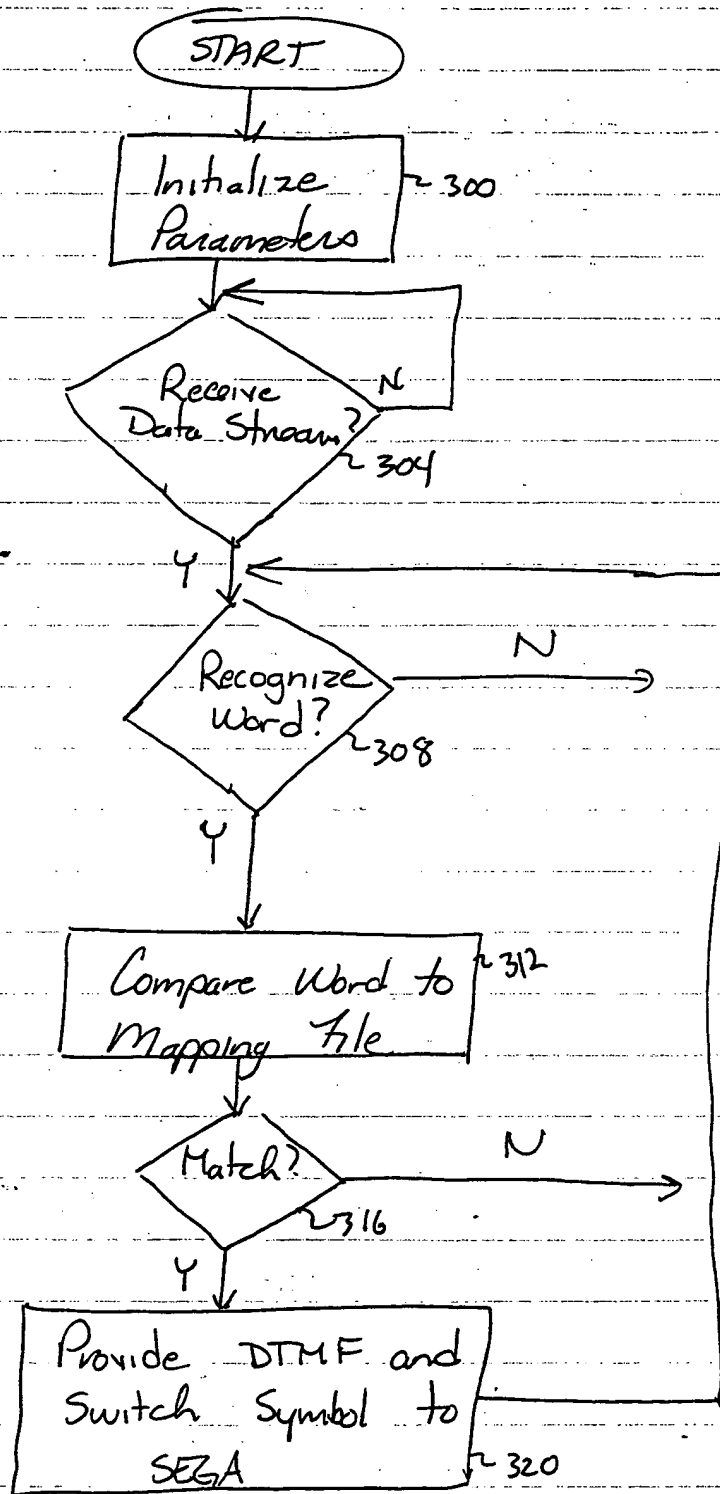 START
Initialize
Parameters
300
Receive
N
Data Stream?
304
Y
N
Recognize
Word?
308
Y
Compare Word to
312
Mapping File
N
Match?
316
Y
Provide DTMF and
Switch Symbol to
SEGA
320